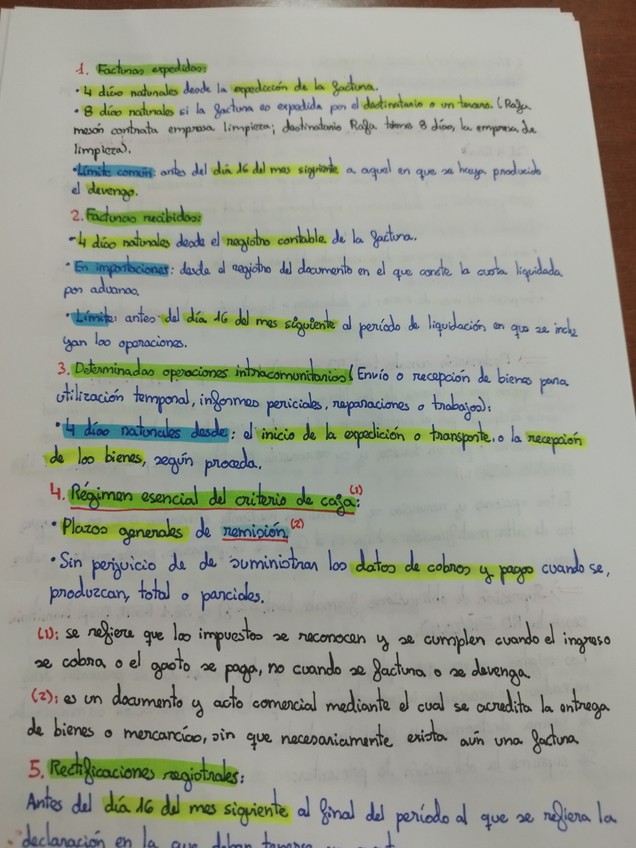 1. Facturas expedidas:
· 4 días naturales desde la expedición de la factura.
· 8 días naturales si la factura es expedida por el destinatario o un tercero. (Rafa
mesón contrata empresa limpieza; destinatario Rafa tiene 8 días, la empresa de
limpieza).
· Límite común: antes del día 16 del mes siguiente a aquel en que se haya producido
el devengo.
2. Facturas recibidas:
· 4 días naturales desde el registro contable de la factura.
· En importaciones: desde el registro del documento en el que conste la cuota liquidada
por aduanas.
· Límite: antes del día 16 del mes siguiente al período de liquidación en que se inclu
yan las operaciones.
3. Determinadas operaciones intracomunitarias (Envío o recepción de bienes para
utilización temporal, informes periciales, reparaciones o trabajos):
· 4 días naturales desde: el inicio de la expedición o transporte, o la recepción
de los bienes, según proceda.
4. Régimen esencial del criterio de caja (1):
· Plazos generales de remisión. (2)
· Sin perjuicio de de suministrar los datos de cobros y pagos cuando se,
produzcan, total o parciales.
(1): se refiere que los impuestos se reconocen y se cumplen cuando el ingreso
se cobra o el gasto se paga, no cuando se factura o se devenga.
(2): es un documento y acto comercial mediante el cual se acredita la entrega
de bienes o mercancías, sin que necesariamente exista aún una factura
5. Rectificaciones registrales:
Antes del día 16 del mes siguiente al final del período al que se refiera la
declaración en la que deban tenerse en